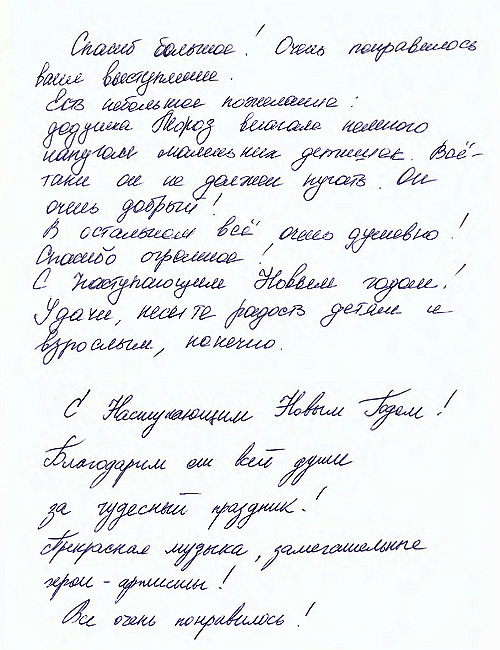 Спасиб большое! Очень понравилось
ваше выступление.
Есть небольшое пожелание:
дедушка Мороз вначале немного
напугал маленьких детишек. Всё-
таки он не должен пугать. Он
очень добрый!
В остальном всё очень душевно!
Спасибо огромное!
С Наступающим Новым годом!
Удачи, несите радость детям и
взрослым, конечно.
С Наступающим Новым Годом!
Благодарим от всей души
за чудесный праздник!
Прекрасная музыка, замечательные
герои - артисты!
Все очень понравилось!